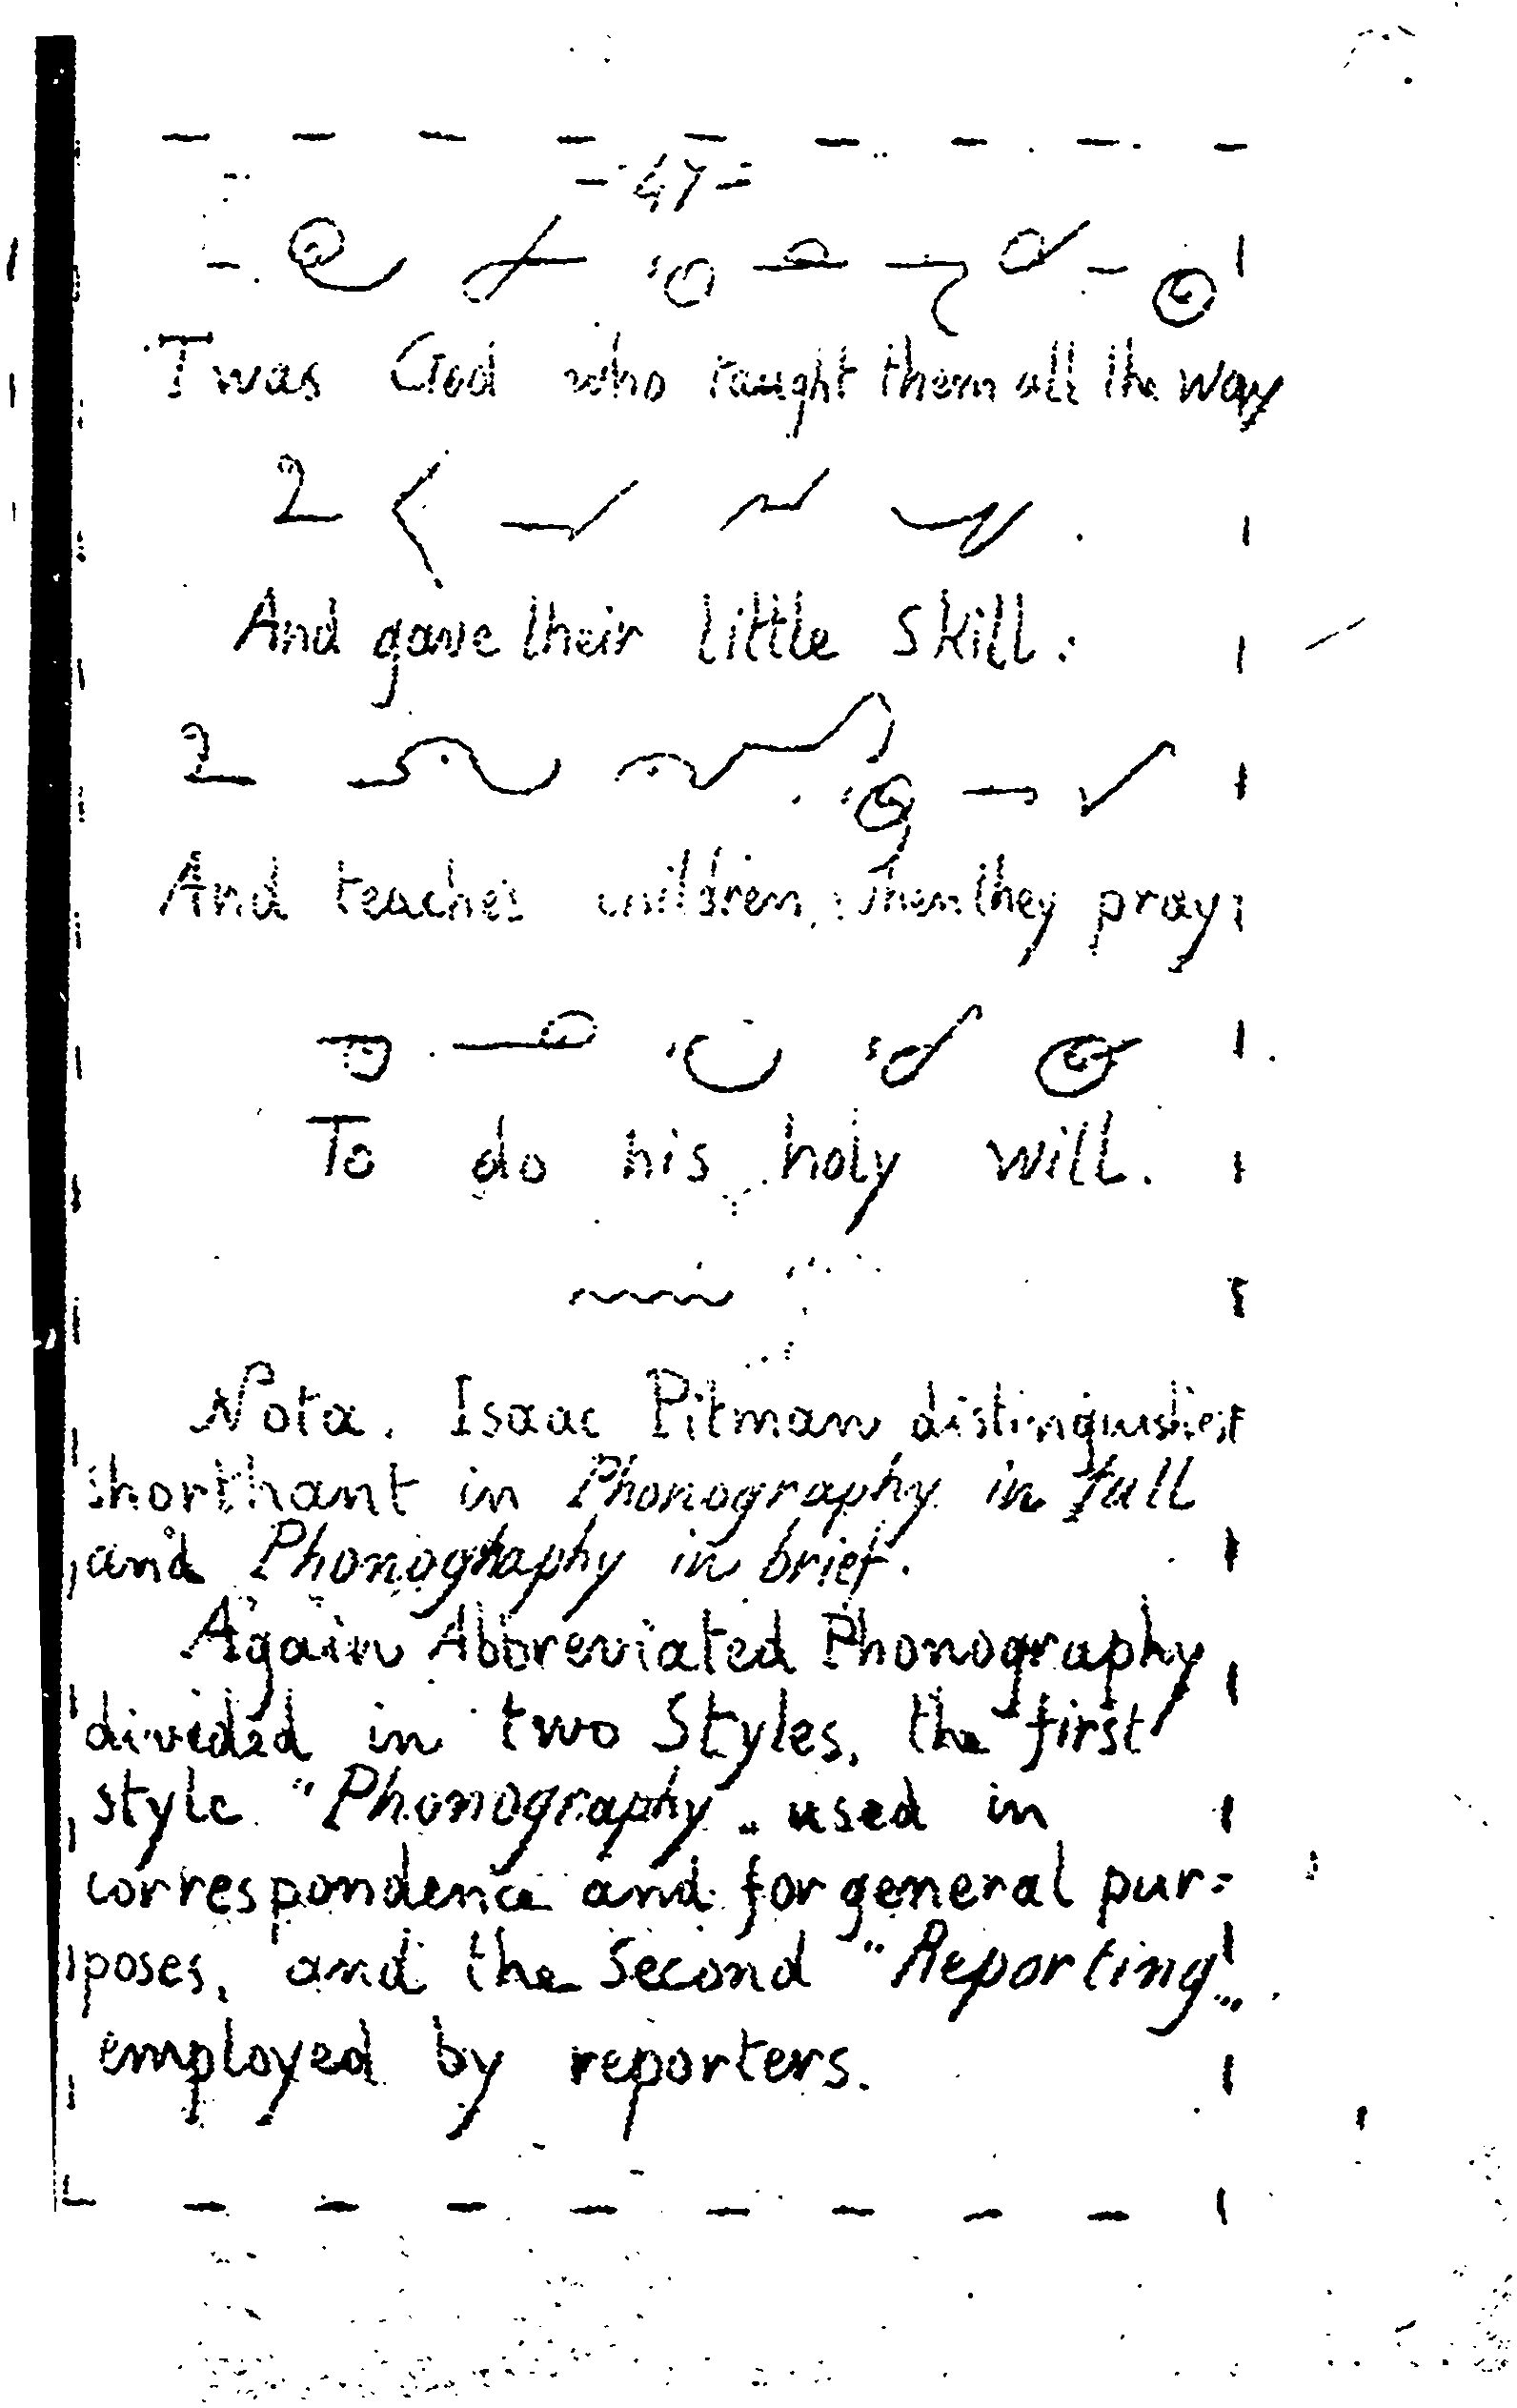 -47-
Twas God who taught them all the way
And gave their little skill.
And teaches children, when they pray
To do his holy will.
Nota. Isaac Pitman distinguishes
shorthant in Phonography in full
and Phonography in brief.
Again Abbreviated Phonography
divided in two Styles, the first
style "Phonography" used in
correspondence and for general pur=
poses, and the second "Reporting"
employed by reporters.